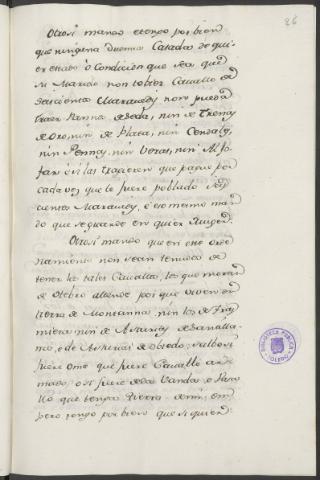 26
Otrosi mando et tengo por bien
que ninguna Duenna Casada de qui-
er estado o Condicion que sea que
si Marido non tobier Cavallo de
seiscientos Maravedis non pueda
traer Panna de seda, nin de Trenas
de oro, nin de Plata, nin Cendales,
nin Pennas, nin Veras, nin Aljo-
far e si las trageren que pague por
cada vez que le fuere poblado seis
cientos Maravedis, e eso mesmo man-
do que se guarde en quier
Otrosi mando que en este orde-
namiento non sean tenudos de
tener los tales Cavallos, los que moran
de Otebro allende por que viven en
tierra de Montanna nin los de Tras
miera nin de Asturias de Santilla-
na, e de Asturias de obiedo; salvo si
fuere ome que fuere Cavallo ar-
mado, o si fuere de la Vanda, o Vasa
llo que tenga tierra de mi; em-
pero tengo por bien que si quier
BIBLIOTECA PUBLICA
TOLEDO